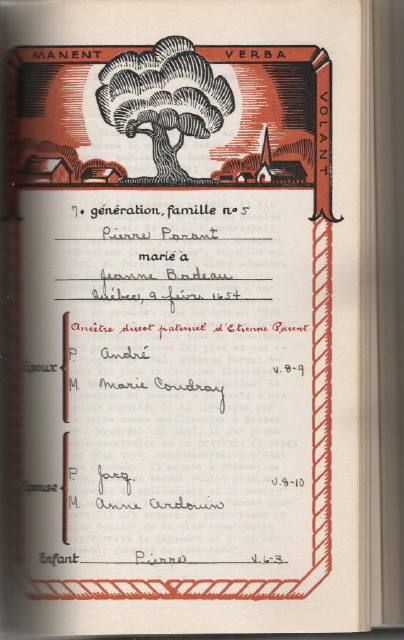 MANENT VERBA
VOLANT
7e génération, famille no 5
Pierre Parant
marié à
Jeanne Badeau
Québec, 9 févr. 1654
Ancêtre direct paternel d'Etienne Parent
Époux
P. André V. 8-9
M. Marie Coudray
Épouse
P. Jacq. V. 8-10
M. Anne Ardouin
Enfant Pierre V. 6-3